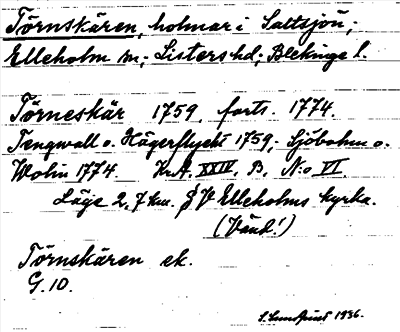 Törnskären, holmar i Saltsjön,
Elleholm sn; Listers hd; Blekinge l.
Törneskär 1759, forts. 1774.
Tengwall o. Hägerflycht 1759; Sjöbohm o.
Wolin 1774. Kr.A. XXIV, B, N:o VI
Läge 2,7 km. SV Elleholms kyrka.
(Vänd!)
Törnskären ek.
G. 10.
S. Lundquist 1936.